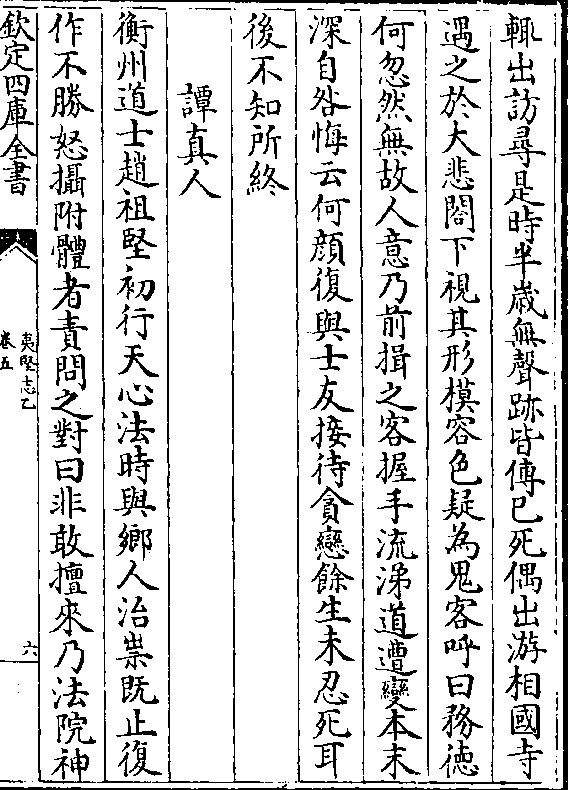 輙出訪尋是時半歳無聲跡皆傳已死偶出游相國寺
遇之於大悲閣下視其形模容色疑為鬼客呼曰務德
何忽然無故人意乃前揖之客握手流涕道遭變本末
深自咎悔云何顔復與士友接待貪戀餘生未忍死耳
後不知所終
譚真人
衡州道士趙祖堅初行天心法時與鄉人治祟既止復
作不勝怒攝附體者責問之對曰非敢擅來乃法院神
欽定四庫全書
夷堅志乙
卷五
六